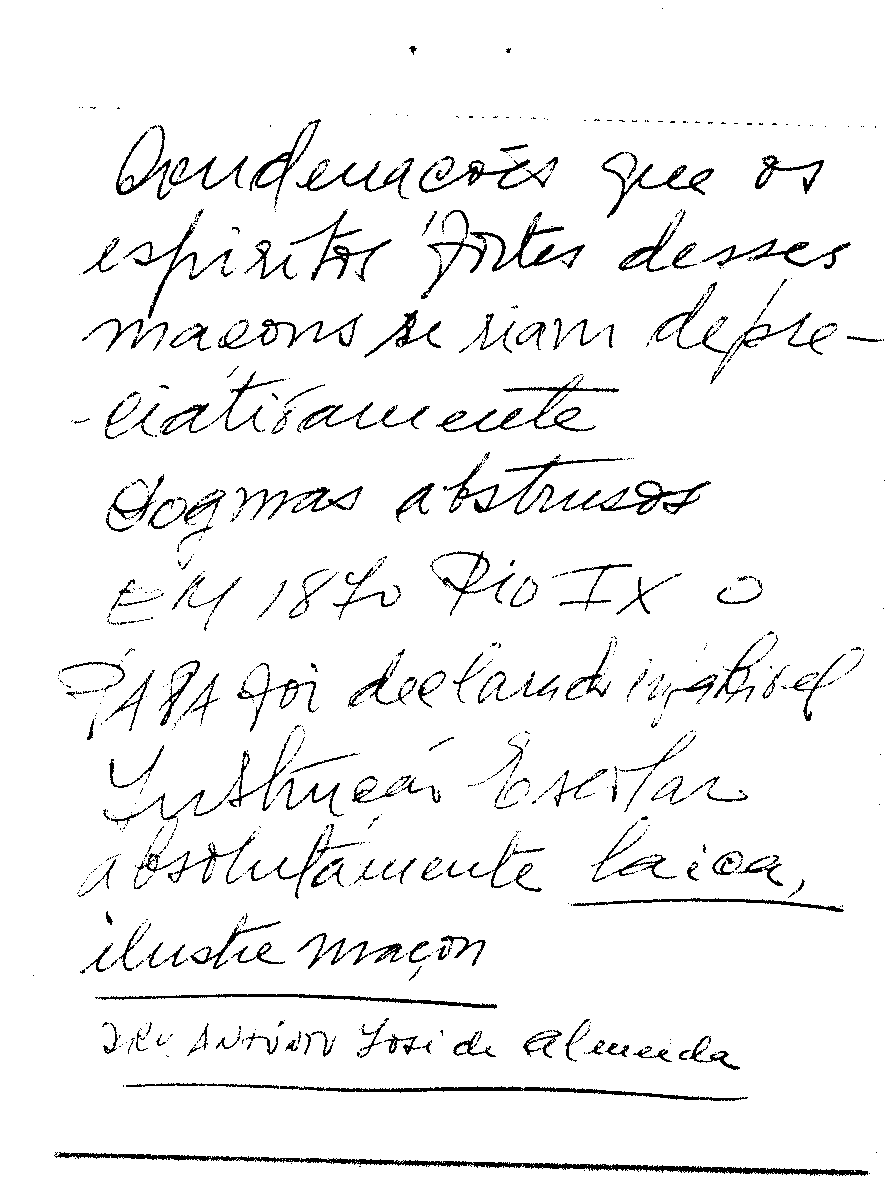 Condenações que os
espiritos fortes desses
maçons se riam depre-
-ciativamente
Dogmas abstrusos
EM 1870 Pio IX o
PAPA foi declarado infalivel
Instrução Escolar
absolutamente laica,
ilustre maçon
António José de Almeida